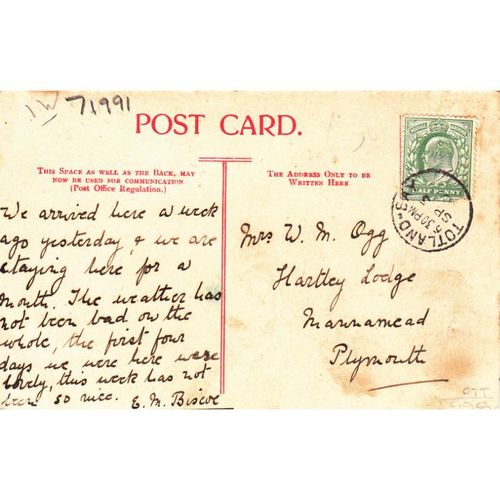 IW 71991
POST CARD.
THIS SPACE AS WELL AS THE BACK, MAY
NOW BE USED FOR COMMUNICATION
(Post Office Regulation.)
THE ADDRESS ONLY TO BE
WRITTEN HERE
HALF PENNY
TOTLAND-B
6 30 PM
SP 3
We arrived here a week
ago yesterday & we are
staying here for a
month. The weather has
not been bad on the
whole, the first four
days we were here were
lovely, this week has not
been so nice. E. M. Biscoe
Mrs W. M. Ogg
Hartley Lodge
Mannamead
Plymouth